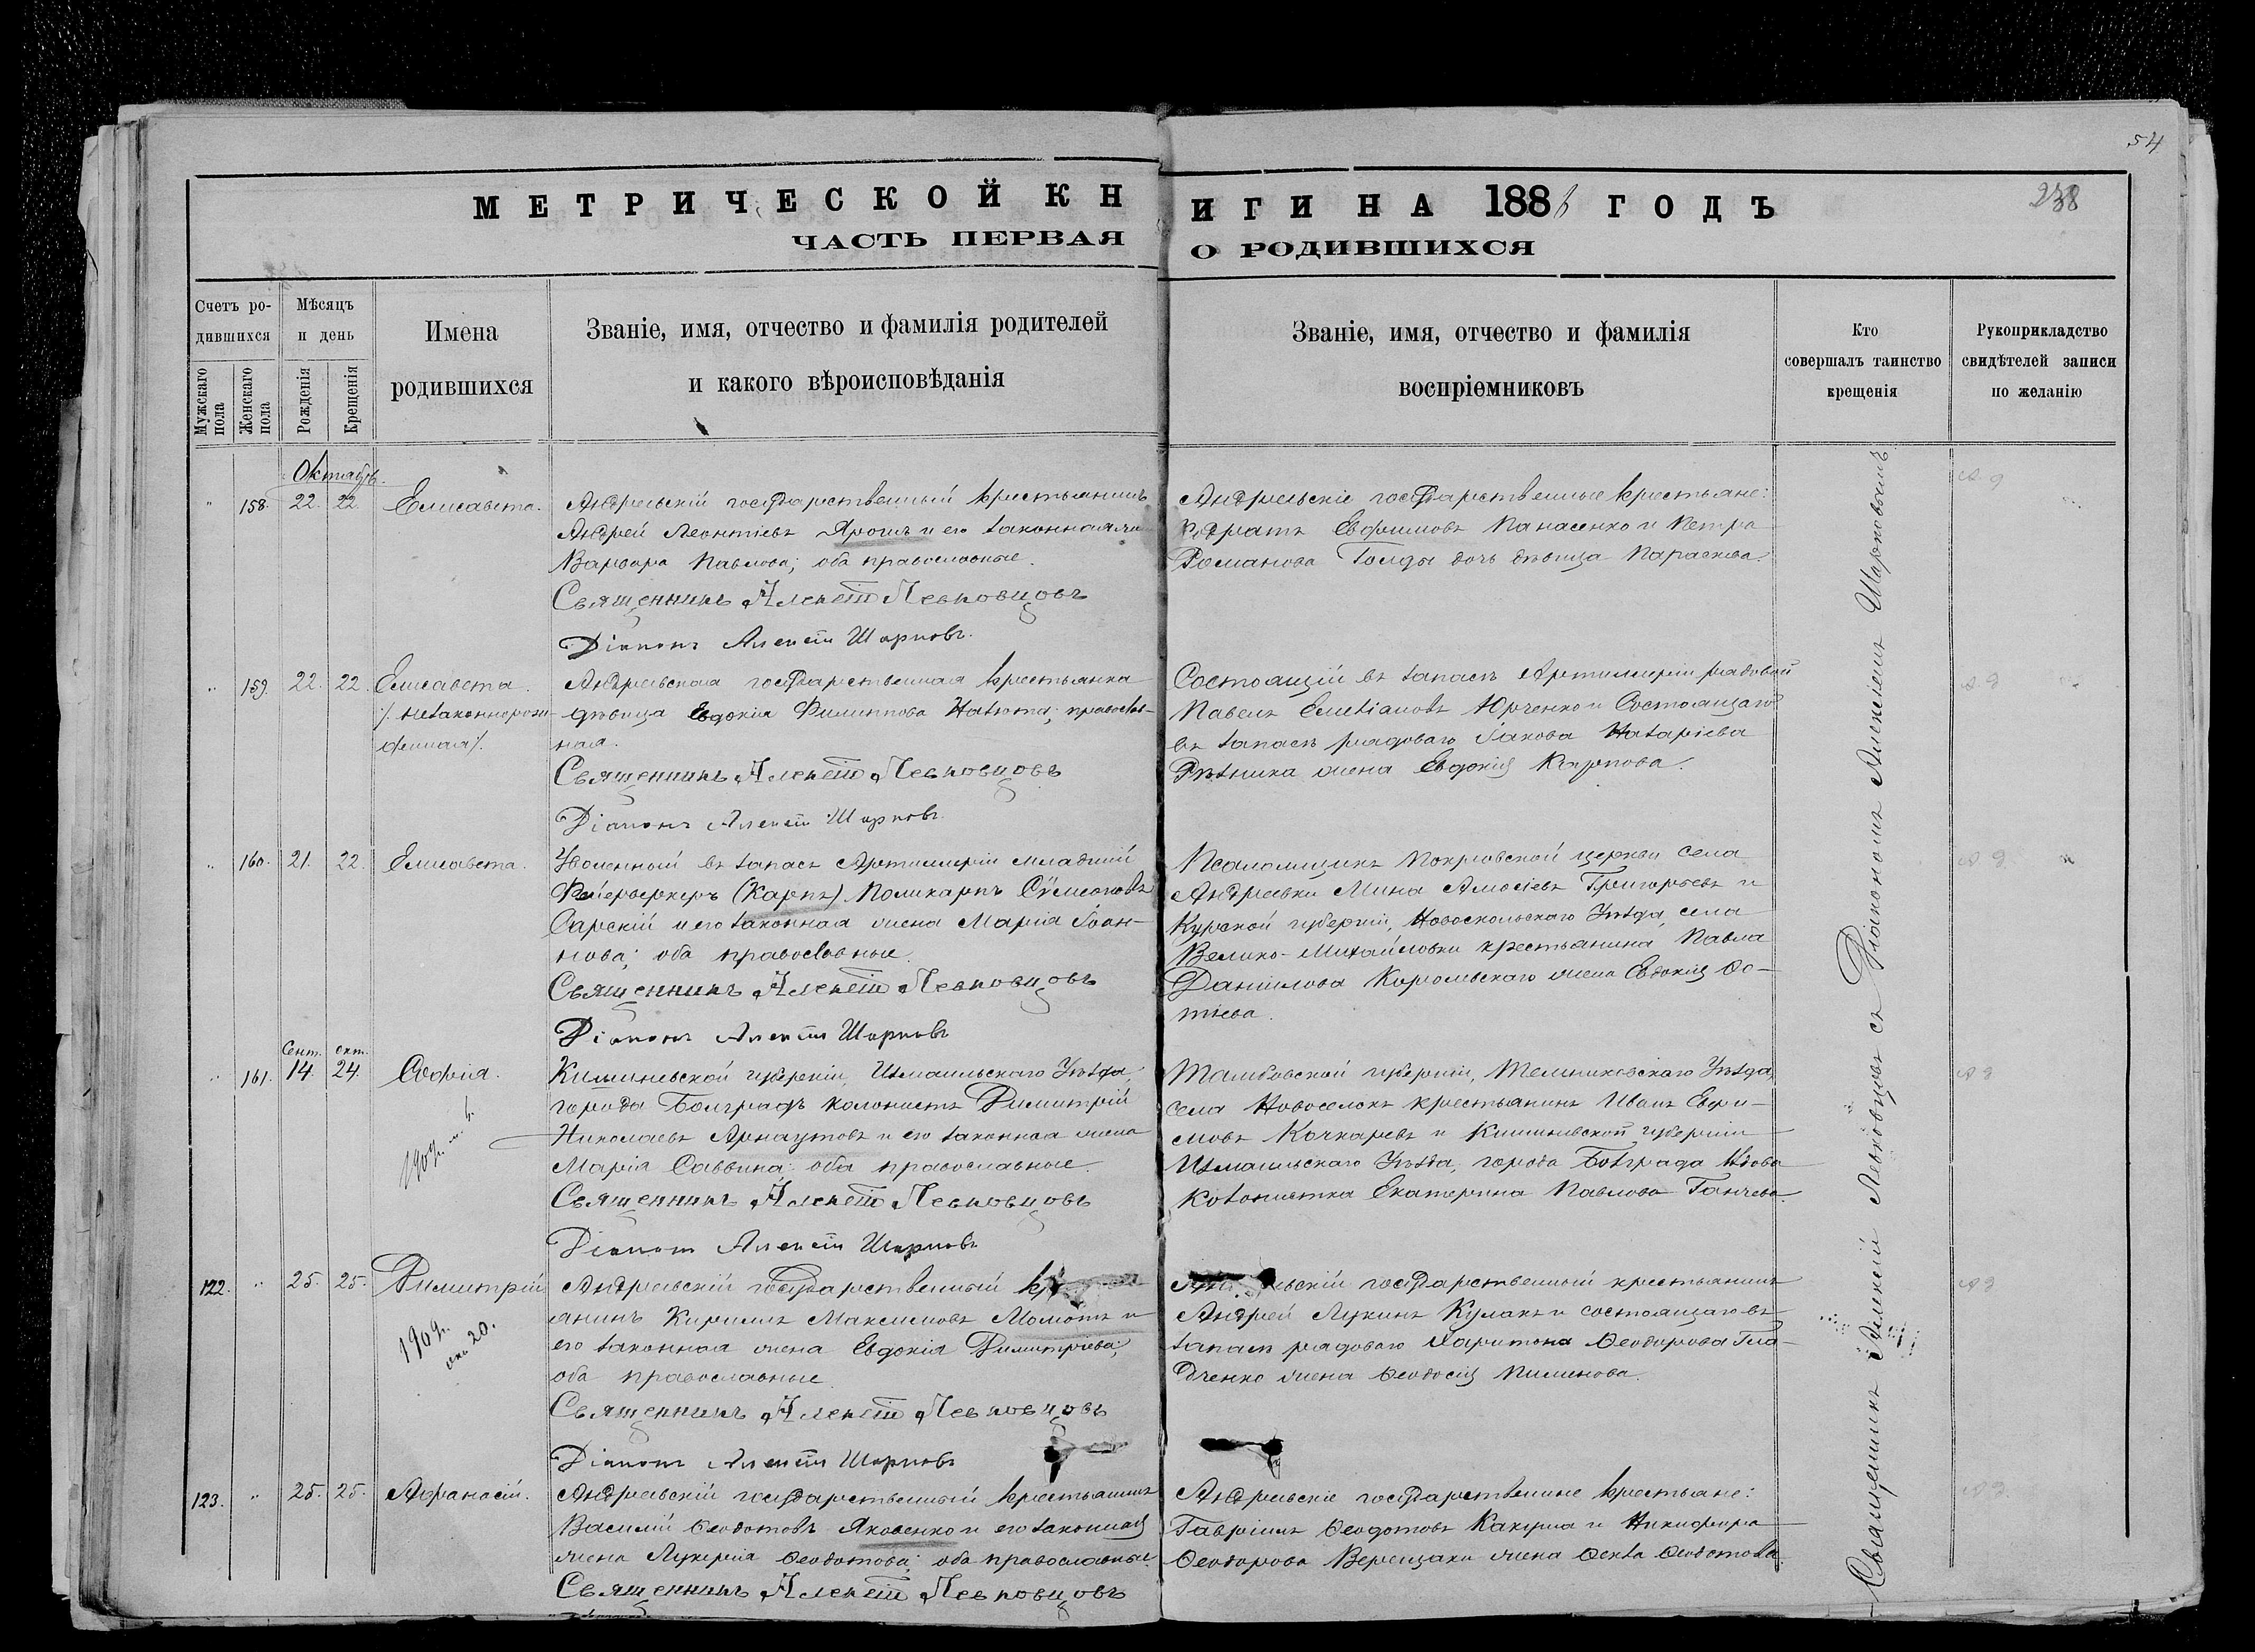 54
МЕТРИЧЕСКОЙ КНИГИ НА 1886 ГОДЪ
238
ЧАСТЬ ПЕРВАЯ О РОДИВШИХСЯ
Счетъ ро-
дившихся
Мужскаго пола
Женскаго пола
Мѣсяцъ
и день
Рожденія
Крещенія
Имена
родившихся
Званіе, имя, отчество и фамилія родителей
и какого вѣроисповѣданія
Званіе, имя, отчество и фамилія
воспріемниковъ
Кто
совершалъ таинство
крещенія
Рукоприкладство
свидѣтелей записи
по желанію
Октябрь.
" 158. 22. 22 Елисавета.
Андреевскій государственный крестьянинъ
Андрей Леонтіевъ Ярошъ и его законная жена
Варвара Павлова; оба православные.
Священникъ Алексій Левковцовъ
Діаконъ Алексій Шарковъ.
Андреевскіе государственные крестьяне:
Кодратъ Евфимовъ Панасенко и Петра
Романова Голды дочь дѣвица Параскева.
" 159. 22. 22. Елисавета.
/незаконнорож-
денная/.
Андреевская государственная крестьянка
дѣвица Евдокія Филиппова; православ-
ная.
Священникъ Алексій Левковцовъ
Діаконъ Алексій Шарковъ.
Состоящій въ запасѣ Артиллеріи рядовой
Павелъ Емеліановъ Юрченко и Состоящаго
въ запасѣ рядоваго Іакова Назаріева
Рѣзника жена Евдокія Карпова.
" 160. 21. 22. Елисавета.
Уволенный въ запасъ Артиллеріи младшій
Фейерверкеръ (Карпъ) Поликарпъ Сумеоновъ
Сарскій и его законная жена Марія Іоан-
нова; оба православные.
Священникъ Алексій Левковцовъ
Діаконъ Алексій Шарковъ
Псаломщикъ Покровской церкви села
Андреевки Мина Амосіевъ Григорьевъ и
Курской губерніи, Новоскольскаго Уѣзда, села
Велико-Михайловки крестьянина Павла
Даніилова Корольскаго жена Евдокія Фо-
тіева.
Сент. Окт.
" 161. 14. 24. Софія.
1909г.
Кишиневской губерніи, Измаильскаго Уѣзда,
города Болградъ колонистъ Димитрій
Николаевъ Арнаутовъ и его законная жена
Марія Саввина; оба православные.
Священникъ Алексій Левковцовъ
Діаконъ Алексій Шарковъ
Тамбовской губерніи, Темниковскаго Уѣзда,
села Новоселокъ крестьянинъ Иванъ Евфи-
мовъ Кочкаревъ и Кишиневской губерніи
Измаильскаго Уѣзда, города Болграда вдова
колонистка Екатерина Павлова Ганчева.
122. " 25. 25. Димитрій
1909г.
20.
Андреевскій государственный
янинъ Кириллъ Максимовъ Момотъ и
его законная жена Евдокія Димитріева;
оба православные.
Священникъ Алексій Левковцовъ
Діаконъ Алексій Шарковъ
Андреевскій государственный крестьянинъ
Андрей Лукинъ Кулакъ и состоящаго въ
запасѣ рядоваго Харитона Феодорова Гла-
дченко жена Феодосія Пименова.
123. " 25. 25. Афанасій.
Андреевскій государственный крестьянинъ
Василій Феодотовъ Яковенко и его законная
жена Лукерія Феодотова; оба православные.
Священникъ Алексій Левковцовъ
Андреевскіе государственные крестьяне:
Гавріилъ Феодотовъ Какуша и Никифора
Феодорова Верещаки жена Фекла Феодотова.
Священникъ Алексій Левковцовъ съ Діакономъ Алексіемъ Шарковымъ